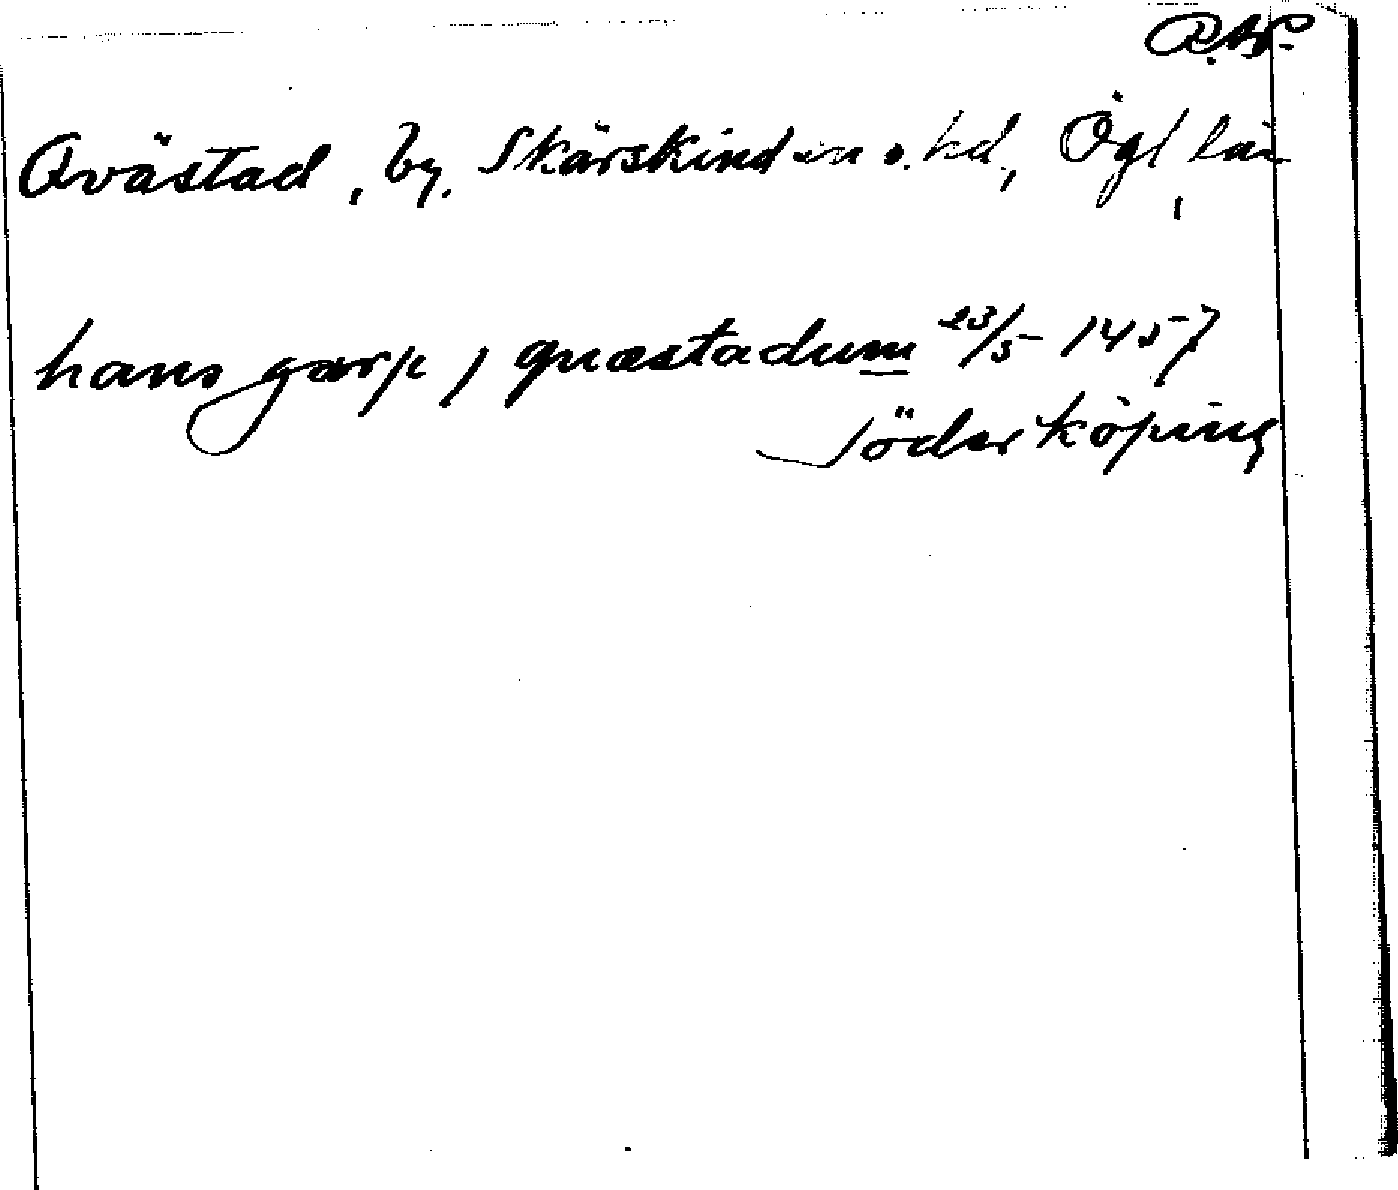 R.A.P.
Qvästad, by. Skärskind sn o. hd, Ögl län
hans garp j quæstadum 23/5 1457
Söderköping